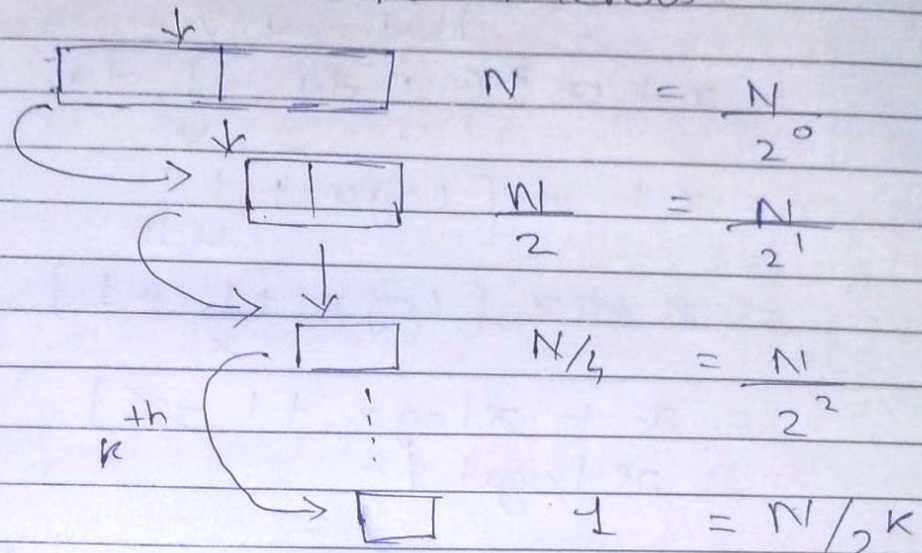 N = N/2⁰
N/2 = N/2¹
N/4 = N/2²
kth
1 = N/2ᴷ